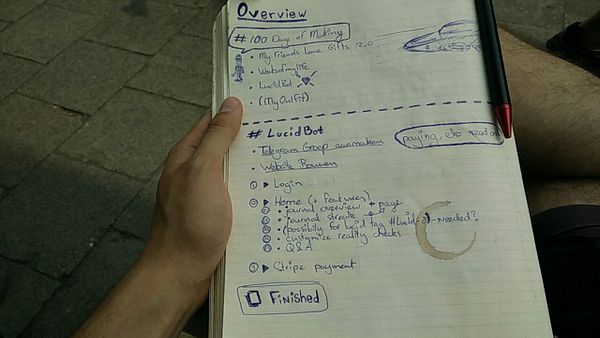 Overview
# 100 Days of Making
• My Friends Love Gifts 2.0
• Wordsofmylife
• LucidBot
• (MyOutFit)
# LucidBot
• Telegram Groep aanmaken
paying, also read only
• Website Bouwen
① ▶ Login
② ▶ Home (+ features)
journal overview + page
journal streak
(possibility for lucid tag #Lucid(e)) - Needed?
customize reality checks
Q&A
③ ▶ Stripe payment
Finished